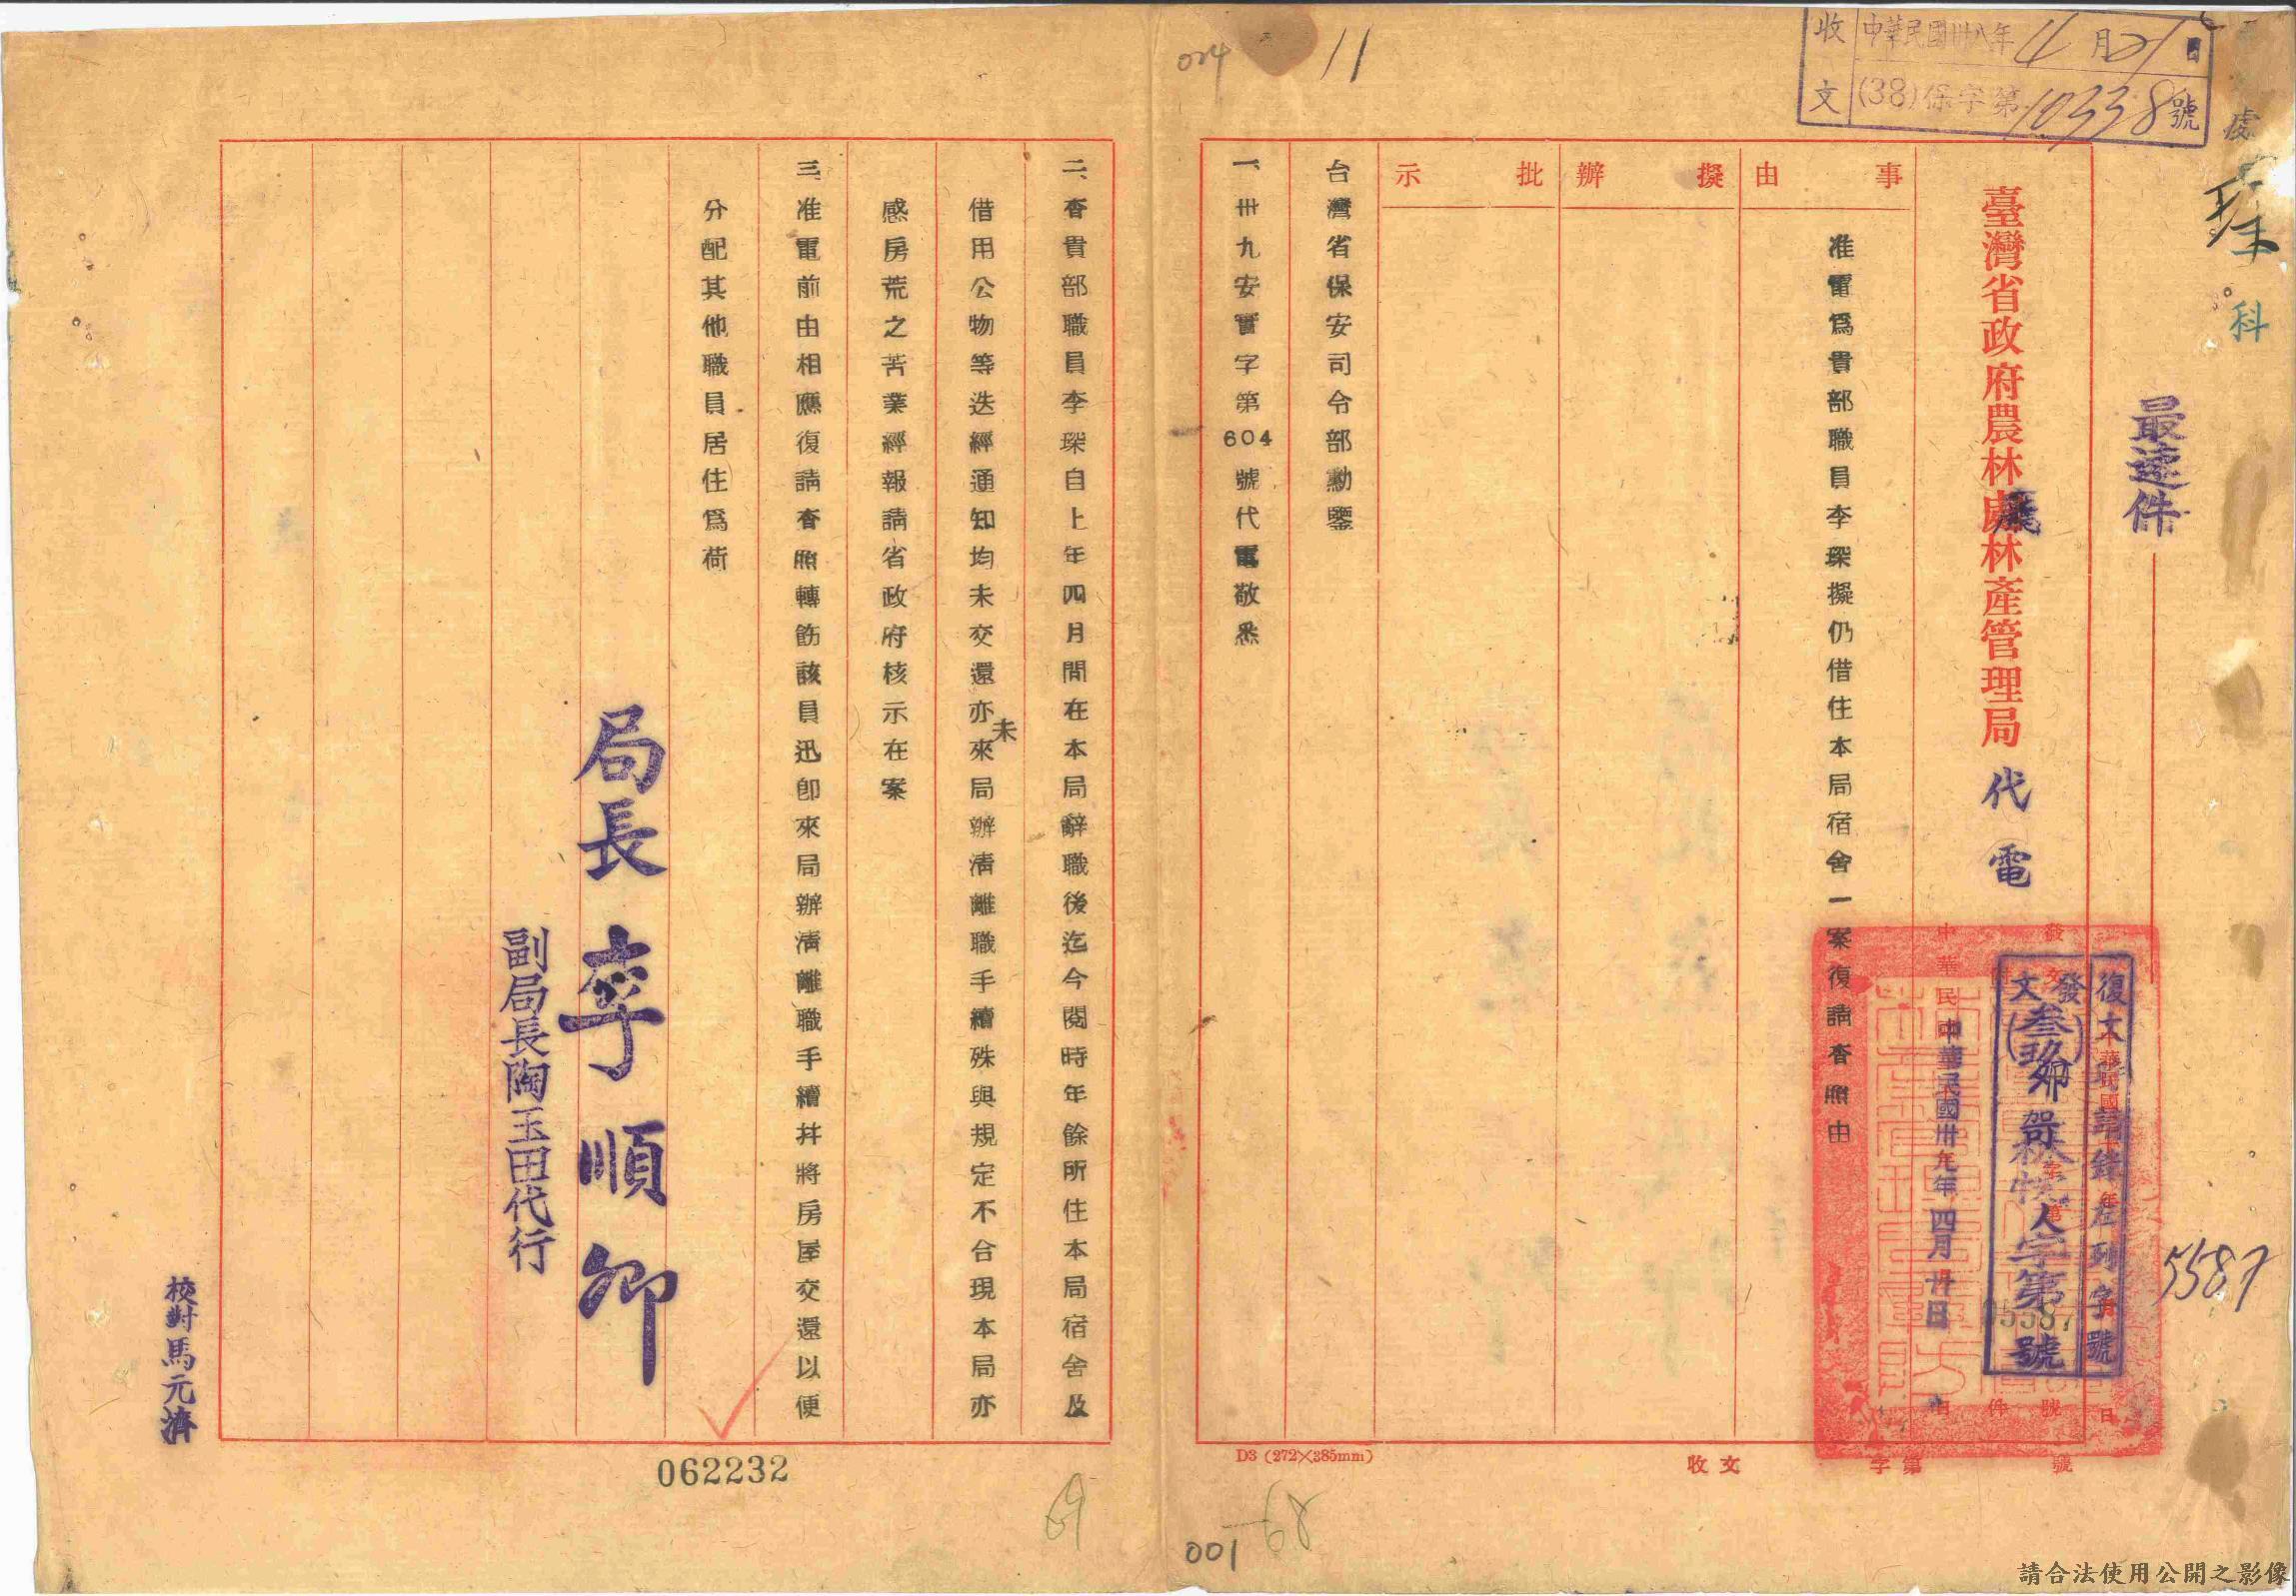 收文
中華民國卅八年4月21日
(38)保字第10338號
處
科
最速件
臺灣省政府農林廳林產管理局 代電
事由
擬辦
批示
准電爲貴部職員李琛擬仍借住本局宿舍一案復請查照由
復文請錄左列字號
發文(叁玖)卯
人字第05587號
5587
中華民國卅九年四月廿日
台灣省保安司令部勳鑒
一、卅九安實字第604號代電敬悉
二、查貴部職員李琛自上年四月間在本局辭職後迄今閱時年餘所住本局宿舍及
借用公物等迭經通知均未交還亦未來局辦清離職手續殊與規定不合現本局亦
感房荒之苦業經報請省政府核示在案
三、准電前由相應復請查照轉飭該員迅卽來局辦清離職手續幷將房屋交還以便
分配其他職員居住爲荷
局長李順卿
副局長陶玉田代行
校對馬元濟
024
11
D3 (272×385mm)
收文
字第
號
062232
69
68
001
請合法使用公開之影像